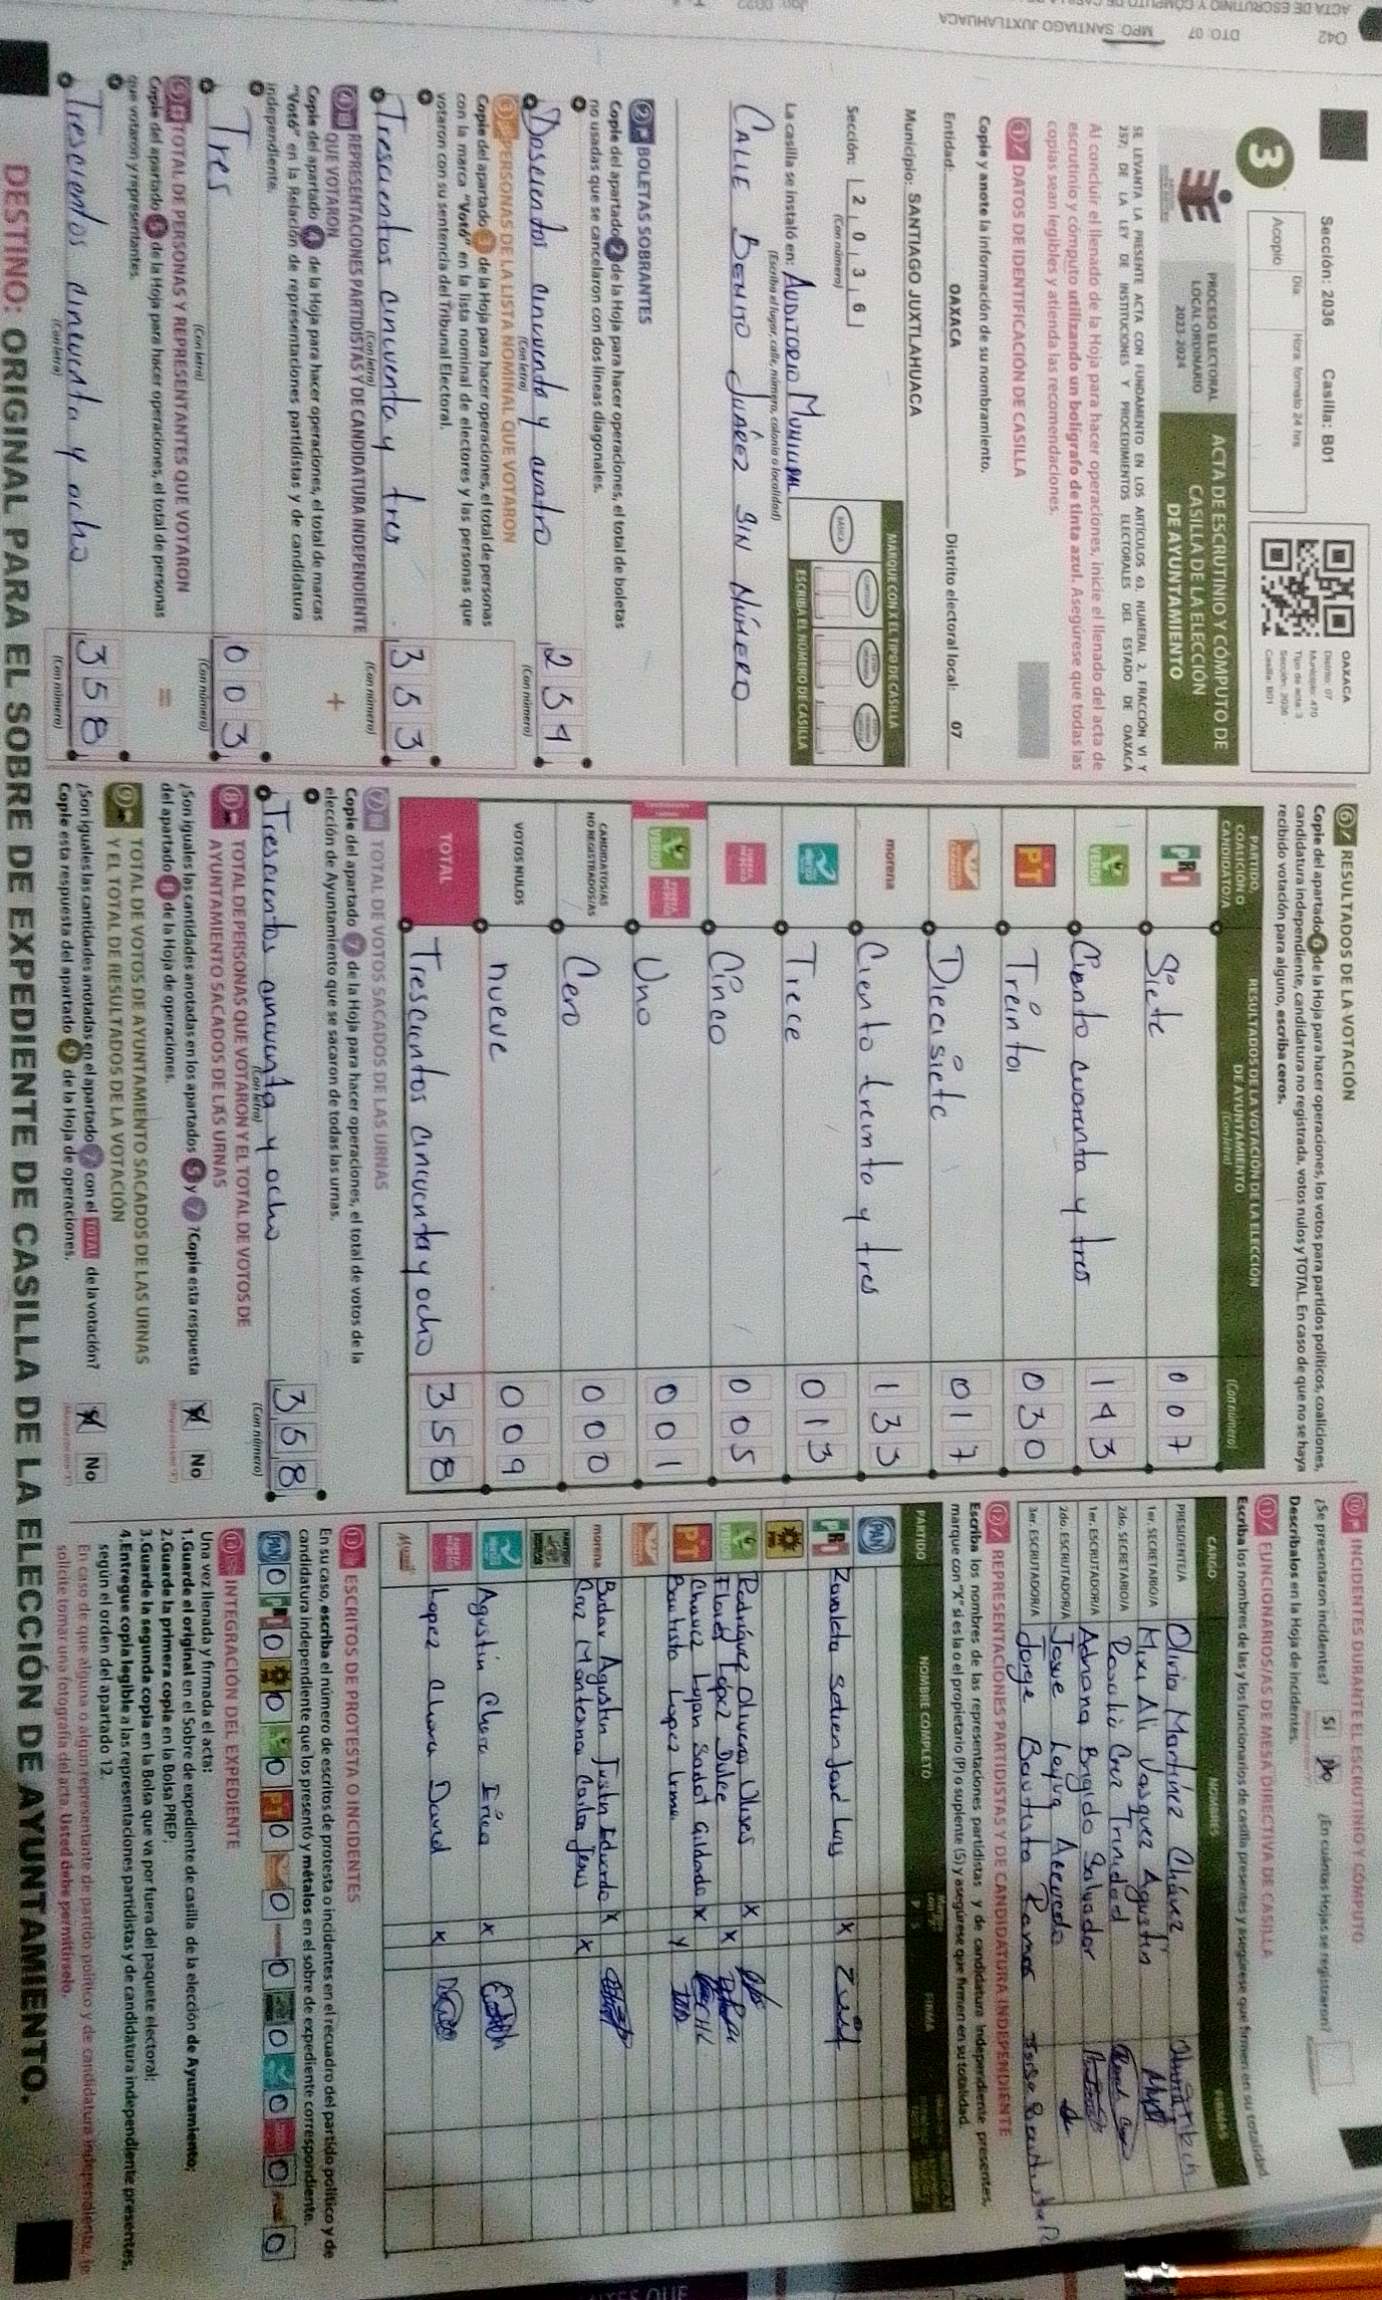 ACTA DE ESCRUTINIO Y CÓMPUTO DE
042 DTO: 07 MPO: SANTIAGO JUXTLAHUACA
Sección: 2036 Casilla: B01
3
Acopio
Día
Hora: formato 24 hrs
OAXACA
Distrito: 07
Municipio: 470
Tipo de acta: 3
Sección: 2036
Casilla: B01
PROCESO ELECTORAL
LOCAL ORDINARIO
2023-2024
ACTA DE ESCRUTINIO Y CÓMPUTO DE
CASILLA DE LA ELECCIÓN
DE AYUNTAMIENTO
SE LEVANTA LA PRESENTE ACTA CON FUNDAMENTO EN LOS ARTÍCULOS 63, NUMERAL 2, FRACCIÓN VI Y
257; DE LA LEY DE INSTITUCIONES Y PROCEDIMIENTOS ELECTORALES DEL ESTADO DE OAXACA
Al concluir el llenado de la Hoja para hacer operaciones, inicie el llenado del acta de
escrutinio y cómputo utilizando un bolígrafo de tinta azul. Asegúrese que todas las
copias sean legibles y atienda las recomendaciones.
1 DATOS DE IDENTIFICACIÓN DE CASILLA
Copie y anote la información de su nombramiento.
Entidad: OAXACA Distrito electoral local: 07
Municipio: SANTIAGO JUXTLAHUACA
Sección: 2 0 3 6
(Con número)
MARQUE CON X EL TIPO DE CASILLA
BÁSICA
ESCRIBA EL NÚMERO DE CASILLA
La casilla se instaló en: AUDITORIO MUNICIPAL
(Escriba el lugar, calle, número, colonia o localidad)
CALLE BENITO JUÁREZ SIN NÚMERO
2 BOLETAS SOBRANTES
Copie del apartado 2 de la Hoja para hacer operaciones, el total de boletas
no usadas que se cancelaron con dos líneas diagonales.
Doscientos cincuenta y cuatro 254
(Con letra) (Con número)
3 PERSONAS DE LA LISTA NOMINAL QUE VOTARON
Copie del apartado 3 de la Hoja para hacer operaciones, el total de personas
con la marca "Votó" en la lista nominal de electores y las personas que
votaron con su sentencia del Tribunal Electoral.
Trescientos cincuenta y tres 353
(Con letra) (Con número)
4 REPRESENTACIONES PARTIDISTAS Y DE CANDIDATURA INDEPENDIENTE
QUE VOTARON
Copie del apartado 4 de la Hoja para hacer operaciones, el total de marcas
"Votó" en la Relación de representaciones partidistas y de candidatura
independiente.
+
Tres 003
(Con letra) (Con número)
5 TOTAL DE PERSONAS Y REPRESENTANTES QUE VOTARON
Copie del apartado 5 de la Hoja para hacer operaciones, el total de personas
que votaron y representantes.
=
Trescientos cincuenta y ocho 358
(Con letra) (Con número)
6 RESULTADOS DE LA VOTACIÓN
Copie del apartado 6 de la Hoja para hacer operaciones, los votos para partidos políticos, coaliciones,
candidatura independiente, candidatura no registrada, votos nulos y TOTAL. En caso de que no se haya
recibido votación para alguno, escriba ceros.
PARTIDO, COALICIÓN O CANDIDATO/A
RESULTADOS DE LA VOTACIÓN DE LA ELECCIÓN
DE AYUNTAMIENTO
(Con letra) (Con número)
PRI Siete 007
VERDE Ciento cuarenta y tres 143
PT Treinta 030
Diecisiete 017
morena Ciento treinta y tres 133
Trece 013
Cinco 005
VERDE Uno 001
CANDIDATOS/AS NO REGISTRADOS/AS Cero 000
VOTOS NULOS nueve 009
TOTAL Trescientos cincuenta y ocho 358
7 TOTAL DE VOTOS SACADOS DE LAS URNAS
Copie del apartado 7 de la Hoja para hacer operaciones, el total de votos de la
elección de Ayuntamiento que se sacaron de todas las urnas.
Trescientos cincuenta y ocho 358
(Con letra) (Con número)
8 TOTAL DE PERSONAS QUE VOTARON Y EL TOTAL DE VOTOS DE
AYUNTAMIENTO SACADOS DE LAS URNAS
¿Son iguales las cantidades anotadas en los apartados 5 y 7 ? Copie esta respuesta
del apartado 8 de la Hoja de operaciones.
No
9 TOTAL DE VOTOS DE AYUNTAMIENTO SACADOS DE LAS URNAS
Y EL TOTAL DE RESULTADOS DE LA VOTACIÓN
¿Son iguales las cantidades anotadas en el apartado 7 con el TOTAL de la votación?
Copie esta respuesta del apartado 9 de la Hoja de operaciones.
No
10 INCIDENTES DURANTE EL ESCRUTINIO Y CÓMPUTO
¿Se presentaron incidentes? SÍ No ¿En cuántas Hojas se registraron?
Descríbalos en la Hoja de incidentes.
11 FUNCIONARIOS/AS DE MESA DIRECTIVA DE CASILLA
Escriba los nombres de las y los funcionarios de casilla presentes y asegúrese que firmen en su totalidad
CARGO NOMBRES FIRMAS
PRESIDENTE/A Olivia Martínez Chávez
1er. SECRETARIO/A Mixi Ali Vasquez Agustin
2do. SECRETARIO/A Rosalio Cruz Trinidad
1er. ESCRUTADOR/A Adriana Brigido Salvador
2do. ESCRUTADOR/A Josue Leyva Acevedo
3er. ESCRUTADOR/A Jorge Bautista Ramos
12 REPRESENTACIONES PARTIDISTAS Y DE CANDIDATURA INDEPENDIENTE
Escriba los nombres de las representaciones partidistas y de candidatura independiente presentes,
marque con "X" si es la o el propietario (P) o suplente (S) y asegúrese que firmen en su totalidad.
PARTIDO NOMBRE COMPLETO P S FIRMA
PAN
PRI Zavaleta Sotien José Luis X
VERDE Rodríguez Oliveras Ulises X
Flores López Dulce X
PT Chavez Lyan Sadot Gildardo X
Bautista Lopez Irma X
morena Budar Agustin Justin Eduardo X
Cruz Monterna Carlos Jesus X
Agustin Chave Erica X
Lopez Chavez David X
13 ESCRITOS DE PROTESTA O INCIDENTES
En su caso, escriba el número de escritos de protesta o incidentes en el recuadro del partido político y de
candidatura independiente que los presentó y métalos en el sobre de expediente correspondiente.
PAN 0 PRI 0 0 0 PT 0 0 0 0 0 0 0
14 INTEGRACIÓN DEL EXPEDIENTE
Una vez llenada y firmada el acta:
1.Guarde el original en el Sobre de expediente de casilla de la elección de Ayuntamiento;
2.Guarde la primera copia en la Bolsa PREP;
3.Guarde la segunda copia en la Bolsa que va por fuera del paquete electoral;
4.Entregue copia legible a las representaciones partidistas y de candidatura independiente presentes,
según el orden del apartado 12.
En caso de que alguna o algún representante de partido político y de candidatura independiente, le
solicite tomar una fotografía del acta. Usted debe permitírselo.
DESTINO: ORIGINAL PARA EL SOBRE DE EXPEDIENTE DE CASILLA DE LA ELECCIÓN DE AYUNTAMIENTO.